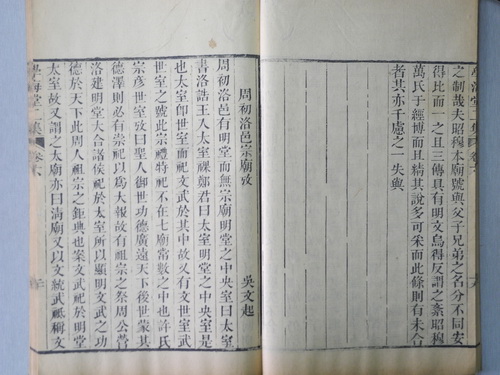 之制哉夫昭穆本廟號與父子兄弟之名分不同安
得比而一之且三傳具有明文烏得反謂之紊昭穆
萬氏于經博而且精其說多可采而此條則有未合
者其亦千慮之一失與
周初洛邑宗廟攷
吳文起
周初洛邑有明堂而無宗廟明堂之中央室曰太室
書洛誥王入太室祼鄭君曰太室明堂之中央室是
也太室卽世室祀文武於其中故又有文世室武
世室之號此宗禮特祀不在七廟常數之中也許氏
宗彥世室攷曰聖人御世功德廣遠天下後世蒙其
德澤則必有崇祀以為大報故有祖宗之祭周公營
洛建明堂大合諸侯祀於太室所以顯明文武之功
德於天下此周人祖宗之鉅典也案文武祀於明堂
太室故又謂之太廟亦曰淸廟又以文統武祗稱文
學海堂二集
卷六